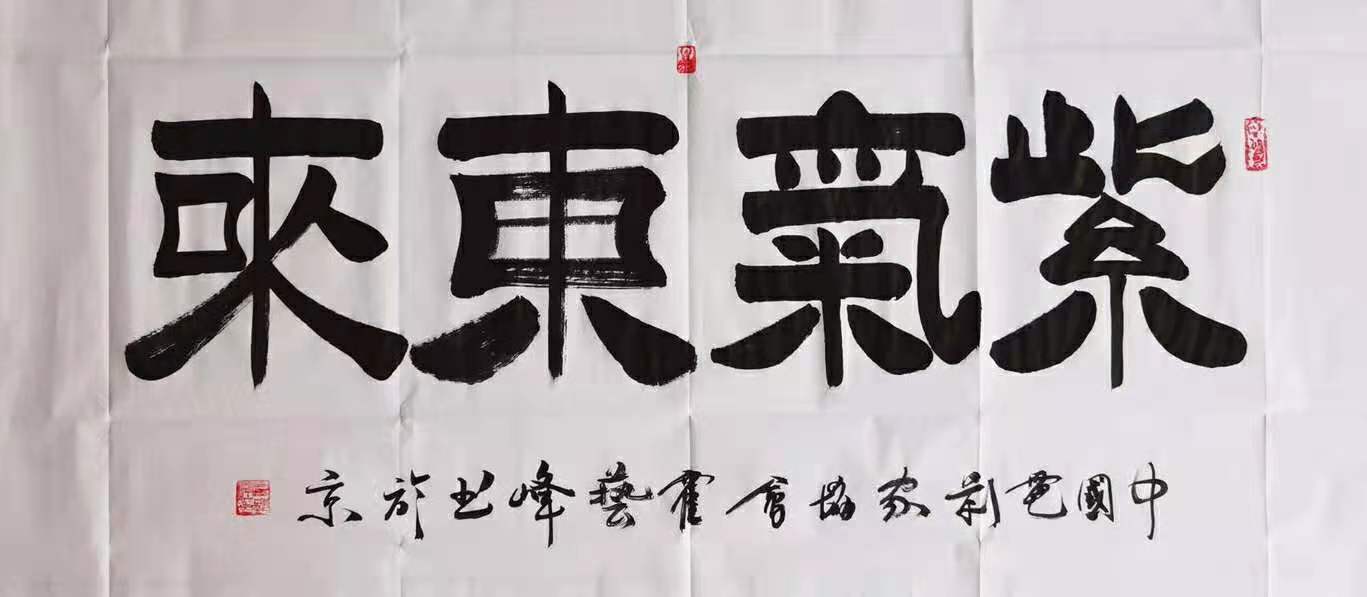 紫氣東來
中國家協會霍藝峰书於京